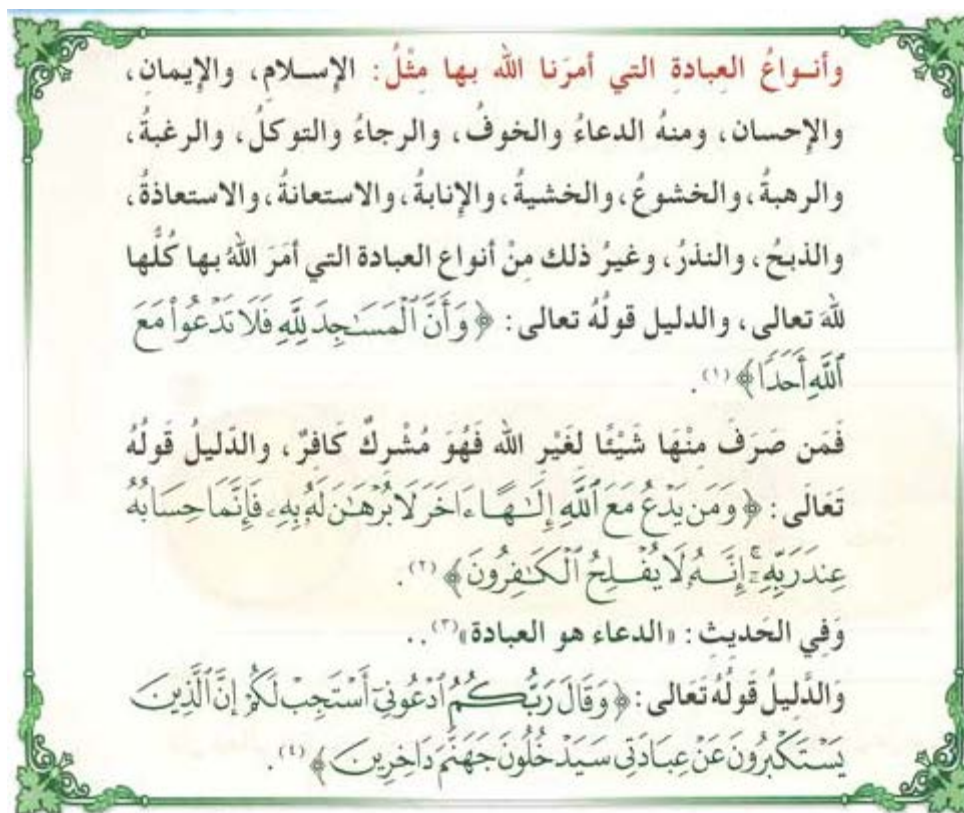 وأنـواعُ العبادةِ التي أمرَنا الله بها مِثْلُ: الإسـلامِ، والإيمانِ،
والإحسان، ومنهُ الدعاءُ والخوفُ، والرجاءُ والتوكلُ، والرغبةُ،
والرهبةُ، والخشوعُ، والخشيةُ، والإنابةُ، والاستعانةُ، والاستعاذةُ،
والذبحُ، والنذرُ، وغيرُ ذلك مِنْ أنواع العبادة التي أمَرَ اللهُ بها كُلُّها
للهَ تعالى، والدليل قولُهُ تعالى: ﴿وَأَنَّ ٱلْمَسَٰجِدَ لِلَّهِ فَلَا تَدْعُوا۟ مَعَ
ٱللَّهِ أَحَدًا﴾ (١).
فَمَن صَرَفَ مِنْهَا شَيْئًا لغَيْرِ الله فَهُوَ مُشْرِكٌ كَافِرٌ، والدّليلُ قَولُهُ
تَعَالَى: ﴿وَمَن يَدْعُ مَعَ ٱللَّهِ إِلَٰهًا ءَاخَرَ لَا بُرْهَٰنَ لَهُۥ بِهِۦ فَإِنَّمَا حِسَابُهُۥ
عِندَ رَبِّهِۦٓ ۚ إِنَّهُۥ لَا يُفْلِحُ ٱلْكَٰفِرُونَ﴾ (٢).
وَفِي الحَديثِ: «الدعاء هو العبادة»(٣)..
وَالدَّلِيلُ قَولُهُ تَعَالى: ﴿وَقَالَ رَبُّكُمُ ٱدْعُونِىٓ أَسْتَجِبْ لَكُمْ إِنَّ ٱلَّذِينَ
يَسْتَكْبِرُونَ عَنْ عِبَادَتِى سَيَدْخُلُونَ جَهَنَّمَ دَاخِرِينَ﴾ (٤).